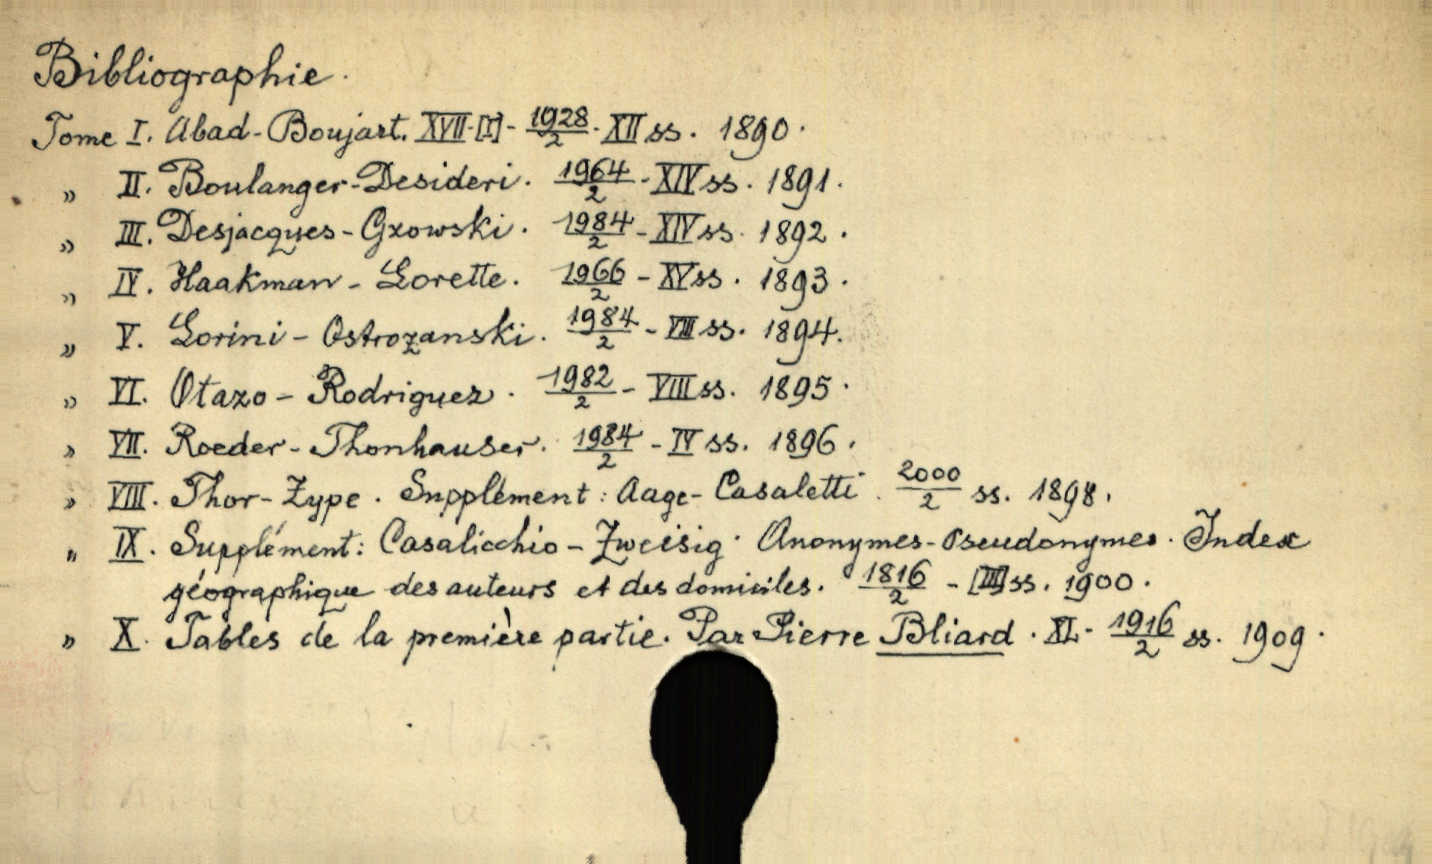 Bibliographie.
Tome I. Abad-Boujart. XVII-[I]- 1928/2 - XII ss. 1890.
" II. Boulanger-Desideri. 1964/2 - XIV ss. 1891.
" III. Desjacques-Gzowski. 1984/2 - XIV ss. 1892.
" IV. Haakman - Lorette. 1966/2 - XV ss. 1893.
" V. Lorini - Ostrozanski. 1984/2 - VIII ss. 1894.
" VI. Otazo - Rodriguez. 1982/2 - VIII ss. 1895.
" VII. Roeder-Thonhauser. 1984/2 - IV ss. 1896.
" VIII. Thor-Zype. Supplément: Aage-Casaletti. 2000/2 ss. 1898.
" IX. Supplément: Casalicchio - Zweisig. Anonymes-Pseudonymes. Index
géographique des auteurs et des domiciles. 1816/2 - [III] ss. 1900.
" X. Tables de la première partie. Par Pierre Bliard. XL - 1916/2 ss. 1909.